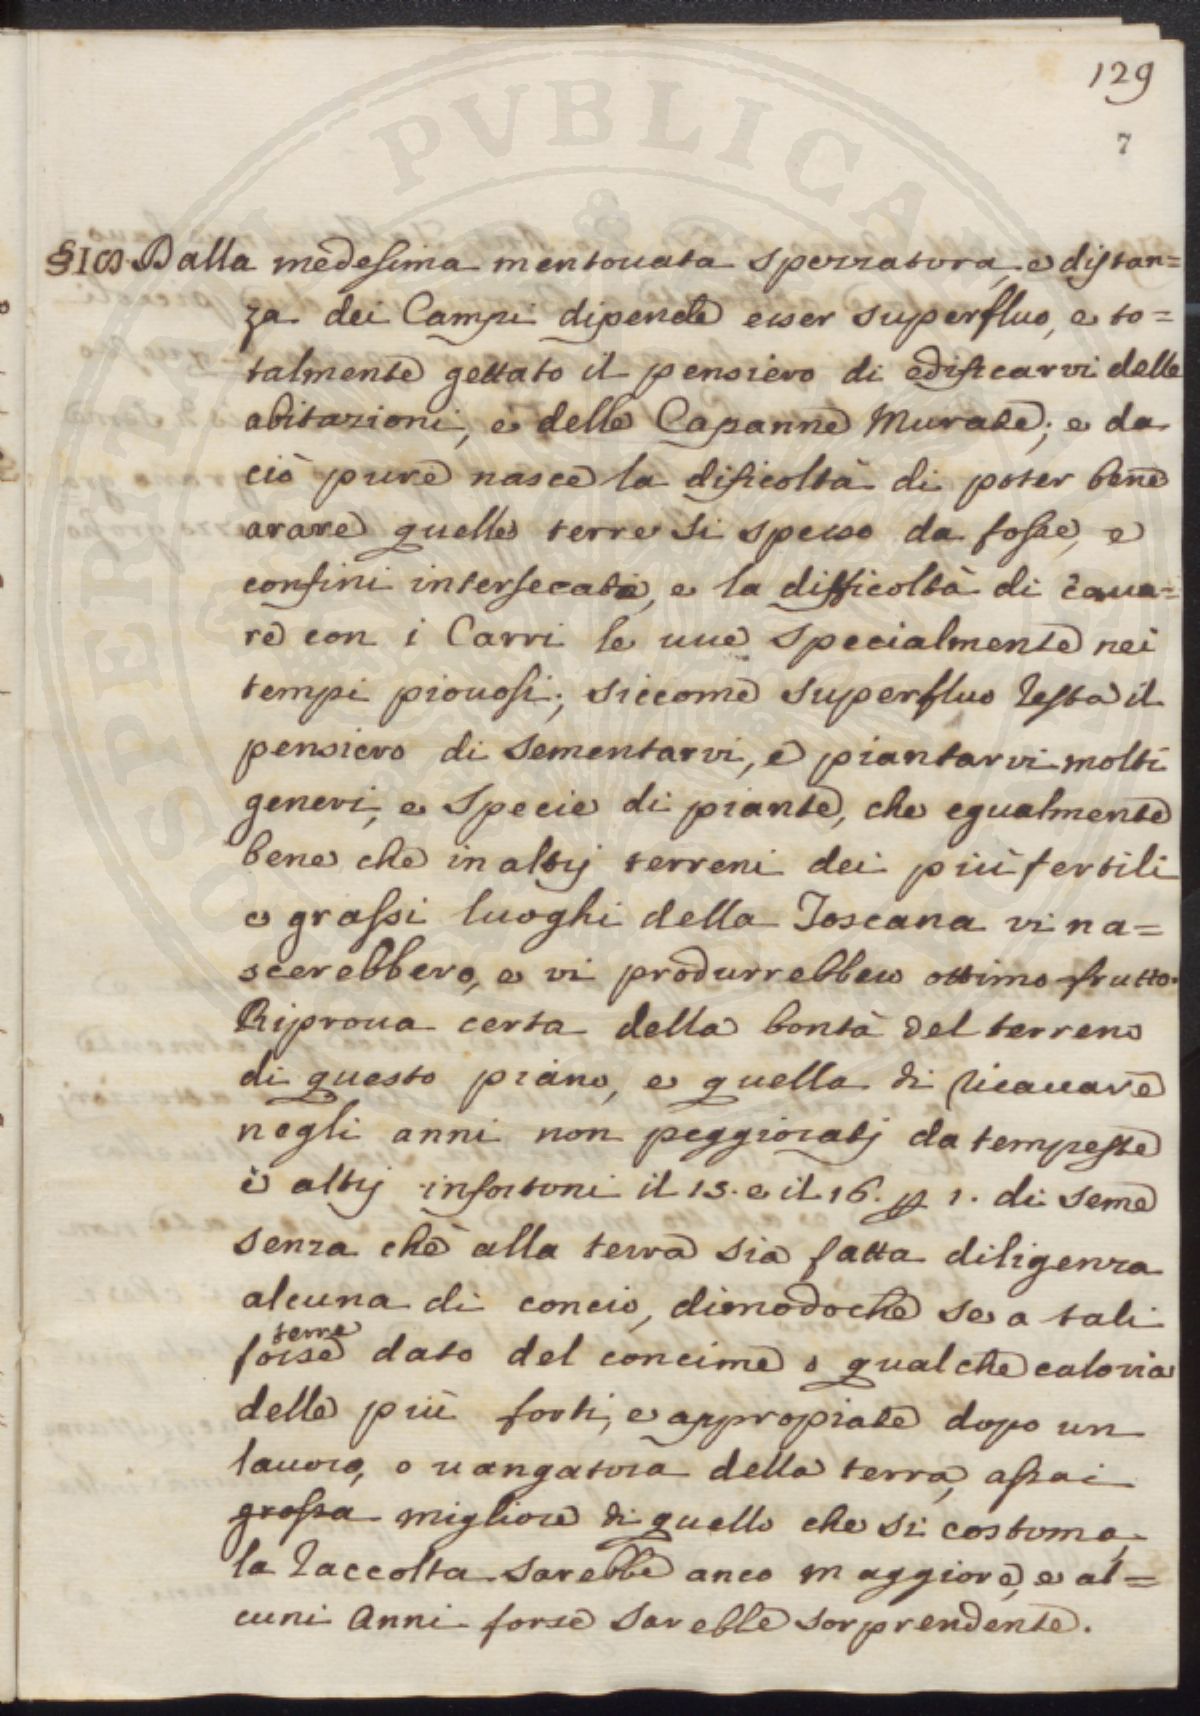 129
7
Dalla medesima mentouata spezzatura, e distan=
za dei Campi dipende esser superfluo, e to=
talmente gettato il pensiero di edificarvi delle
abitazioni, e delle Capanne Murate; e da
ciò pure nasce la dificoltà di poter bene
arare quelle terre si spesso da fosse, e
confini intersecate, e la difficoltà di caua=
re con i Carri le uue specialmente nei
tempi piouosi; siccome superfluo resta il
pensiero di sementarvi, e piantarvi molti
generi, e specie di piante, che egualmente
bene che in altrj terreni dei più fertili
e grassi luoghi della Toscana vi na=
scerebbero, e vi produrrebbero ottimo frutto.
Riproua certa della bontà del terreno
di questo piano, e quella di ricauare
negli anni non peggioratj da tempeste
e altrj infortuni il 15. e il 16. p 1. di seme
senza che alla terra sia fatta diligenza
alcuna di concio, dimodoche se a tali
terre
fosse dato del concime o qualche caloria
delle più forti, e appropiate dopo un
lauoro, o uangatura della terra, assai
grossa migliore di quello che si costuma,
la raccolta sarebbe anco maggiore, e al=
cuni Anni forse sarebbe sorprendente.
PVBLICA
LIBERTAS